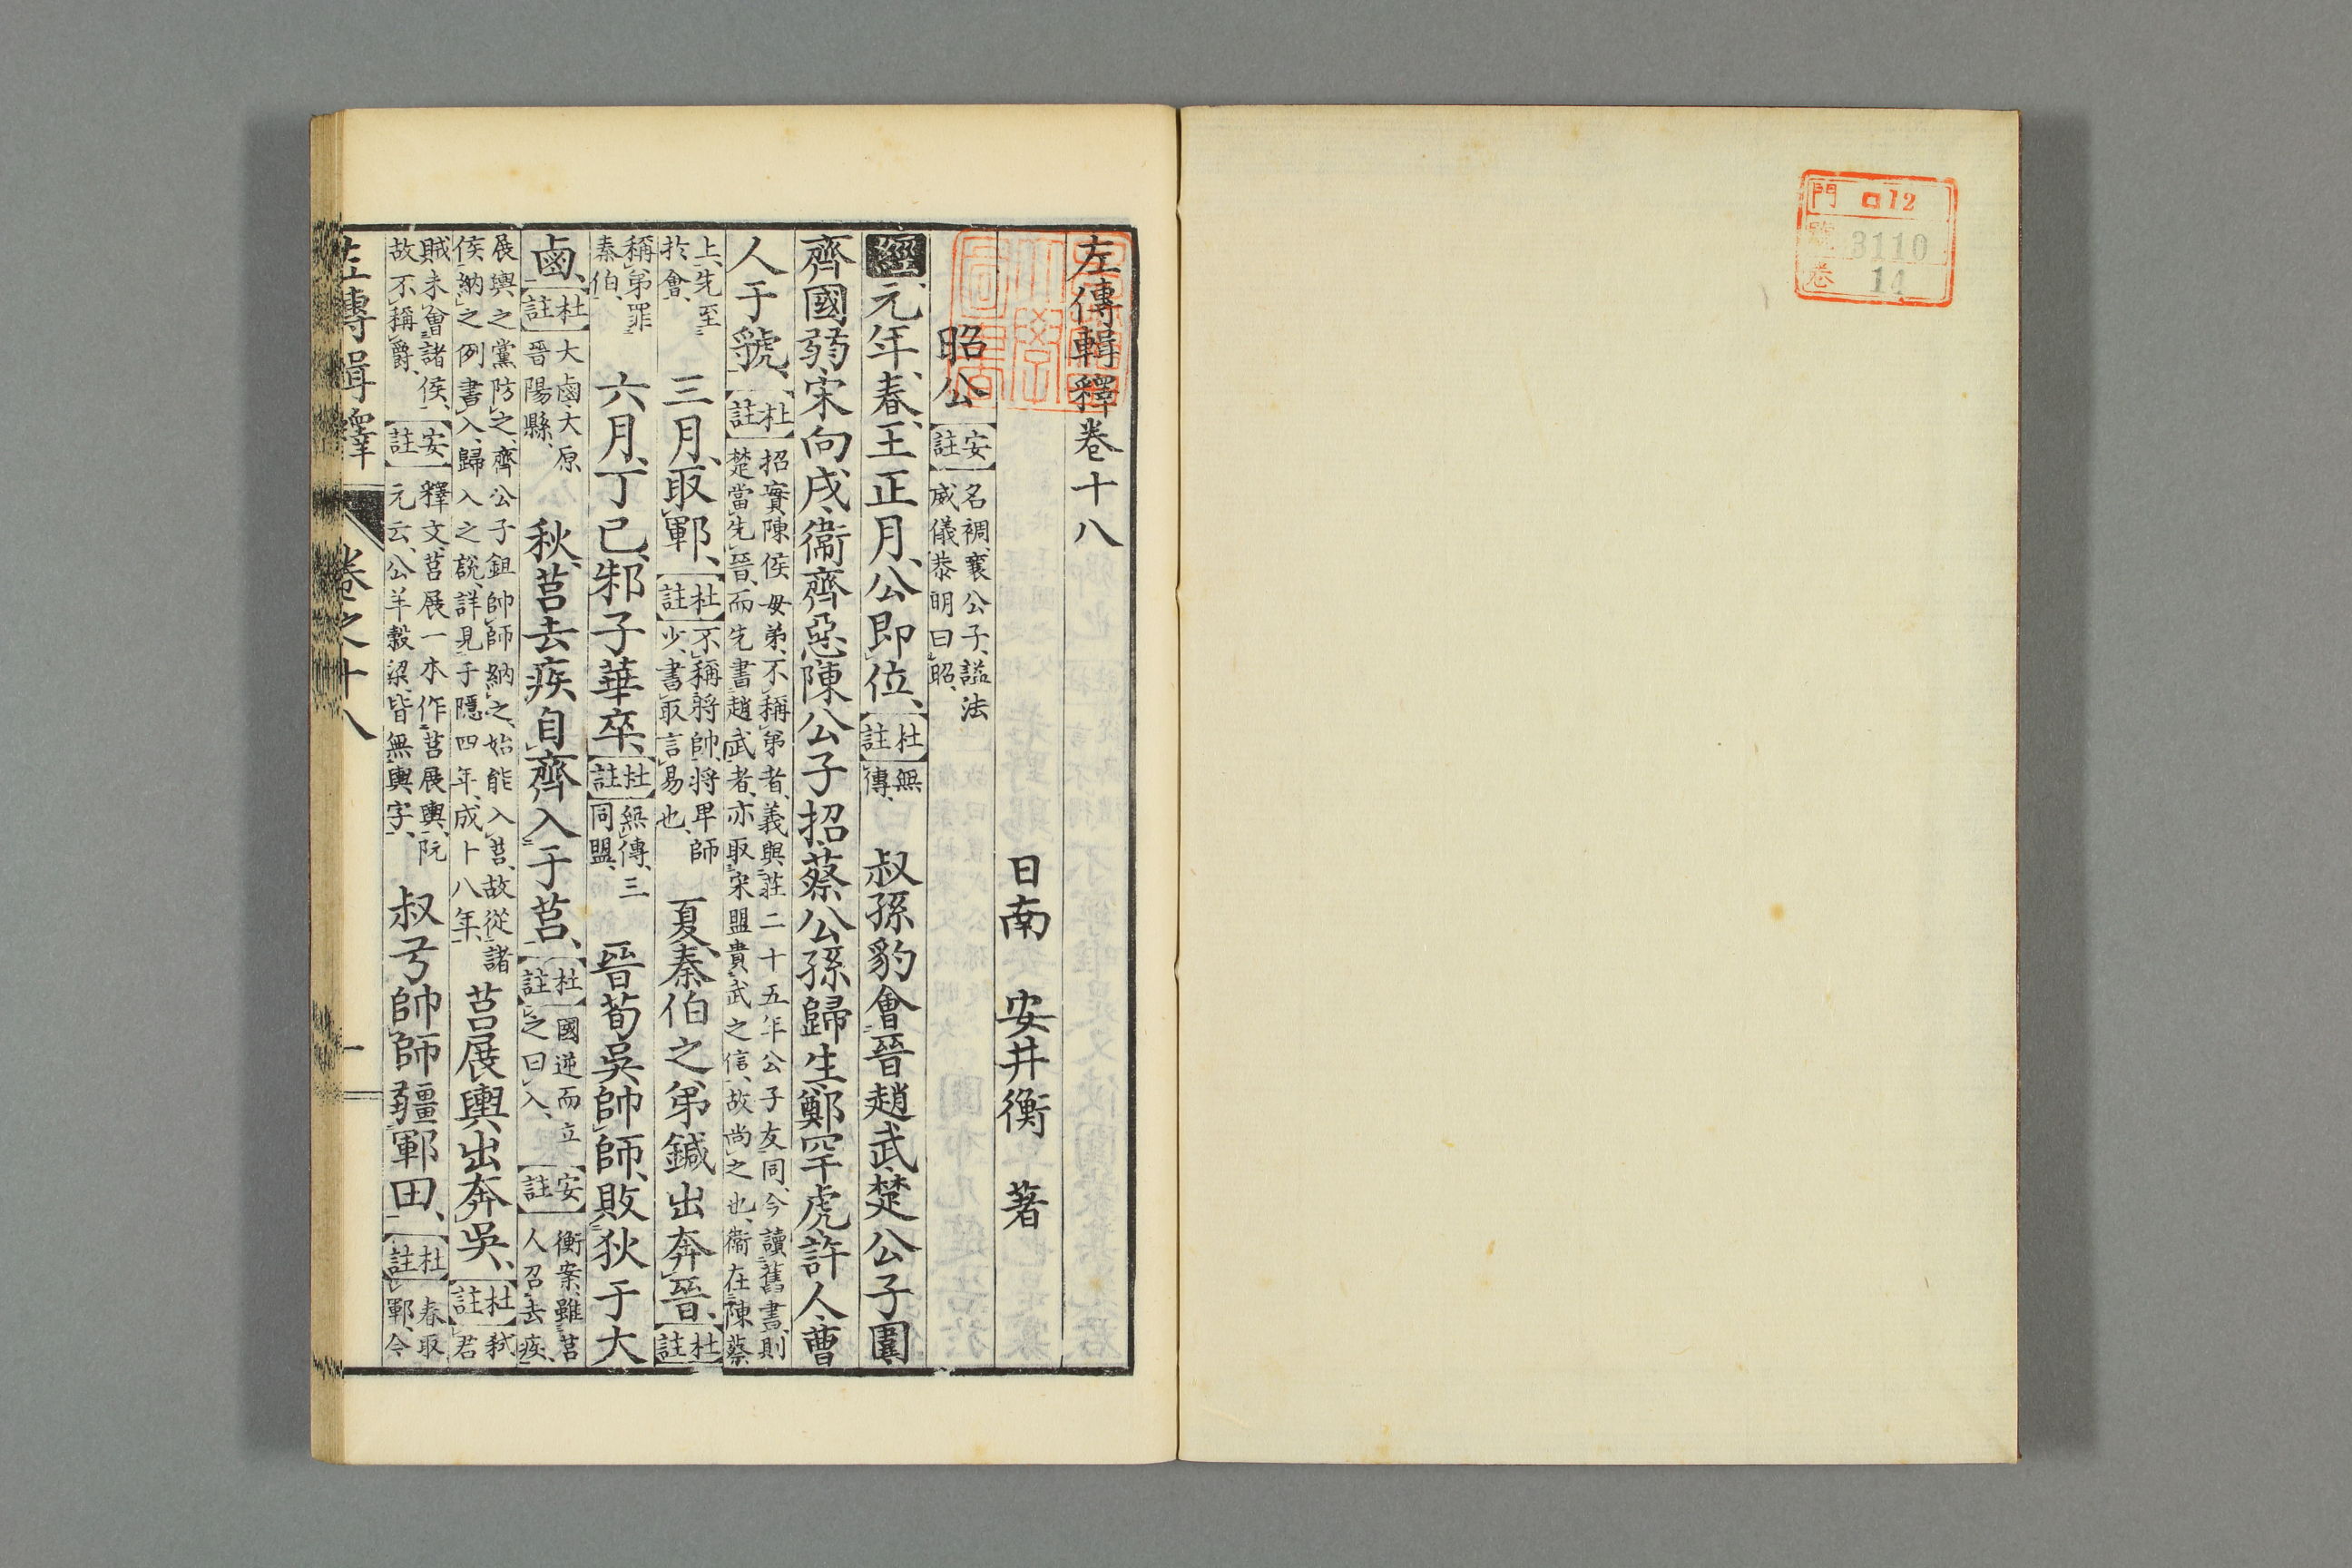 門 ロ12
號 3110
卷 14
左傳輯釋卷十八
日南 安井衡 著
昭公 安註 名裯、襄公子、謚法威儀恭明曰昭、
經、元年、春、王正月、公即位、杜註 無傳、 叔孫豹會晉趙武楚公子圍
齊國弱宋向戌衞齊惡陳公子招蔡公孫歸生鄭罕虎許人曹
人于虢、杜註 招實陳侯母弟、不稱弟者、義與莊二十五年公子友同、今讀舊書、則楚當先晉、而先書趙武者、亦取宋盟貴武之信、故尚之也、衞在陳蔡
上、先至於會、 三月、取鄆、杜註 不稱將帥、將卑師少、書取言易也、 夏、秦伯之弟鍼出奔晉、杜註
稱弟罪秦伯、 六月、丁巳、邾子華卒、杜註 無傳、三同盟、 晉荀吳帥師、敗狄于大
鹵、杜註 大鹵、大原晉陽縣、 秋、莒去疾自齊入于莒、杜註 國逆而立之曰入、 安註 衡案、雖莒人召去疾、
展輿之黨防之、齊公子鉏帥師納之、始能入莒、故從諸侯納之例書入、歸入之說、詳見于隱四年、成十八年、 莒展輿出奔吳、杜註 弒君
賊未會諸侯、故不稱爵、 安註 釋文、莒展一本作莒展輿、阮元云、公羊穀梁、皆無輿字、 叔弓帥師疆鄆田、杜註 春取鄆、今
左傳輯釋 卷之十八 一